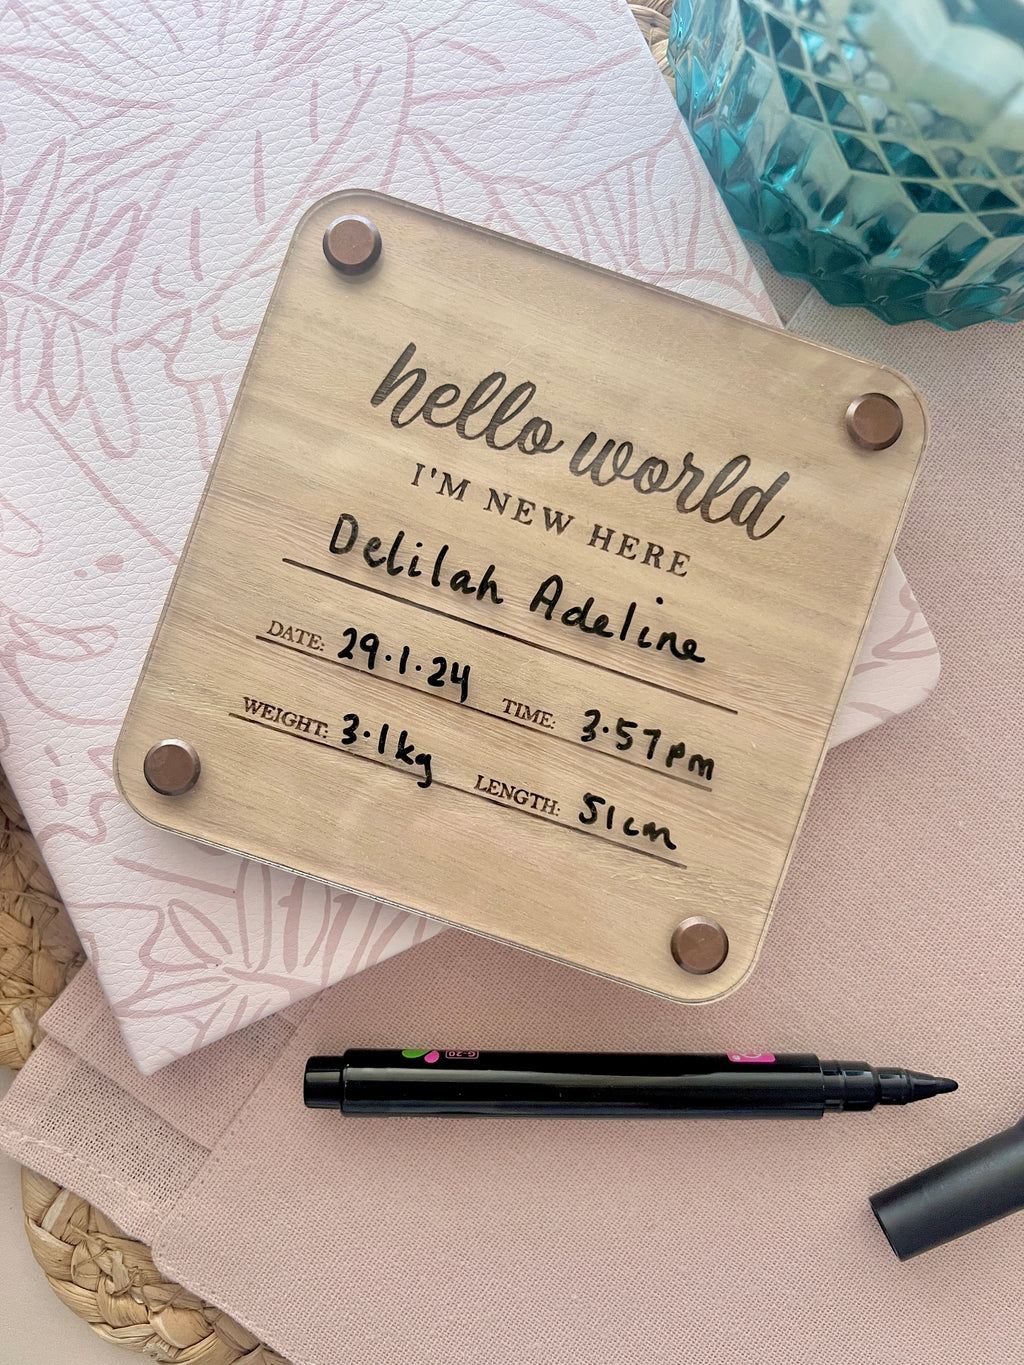 hello world
I'M NEW HERE
Delilah Adeline
DATE: 29.1.24 TIME: 3.57pm
WEIGHT: 3.1kg LENGTH: 51cm
G-20